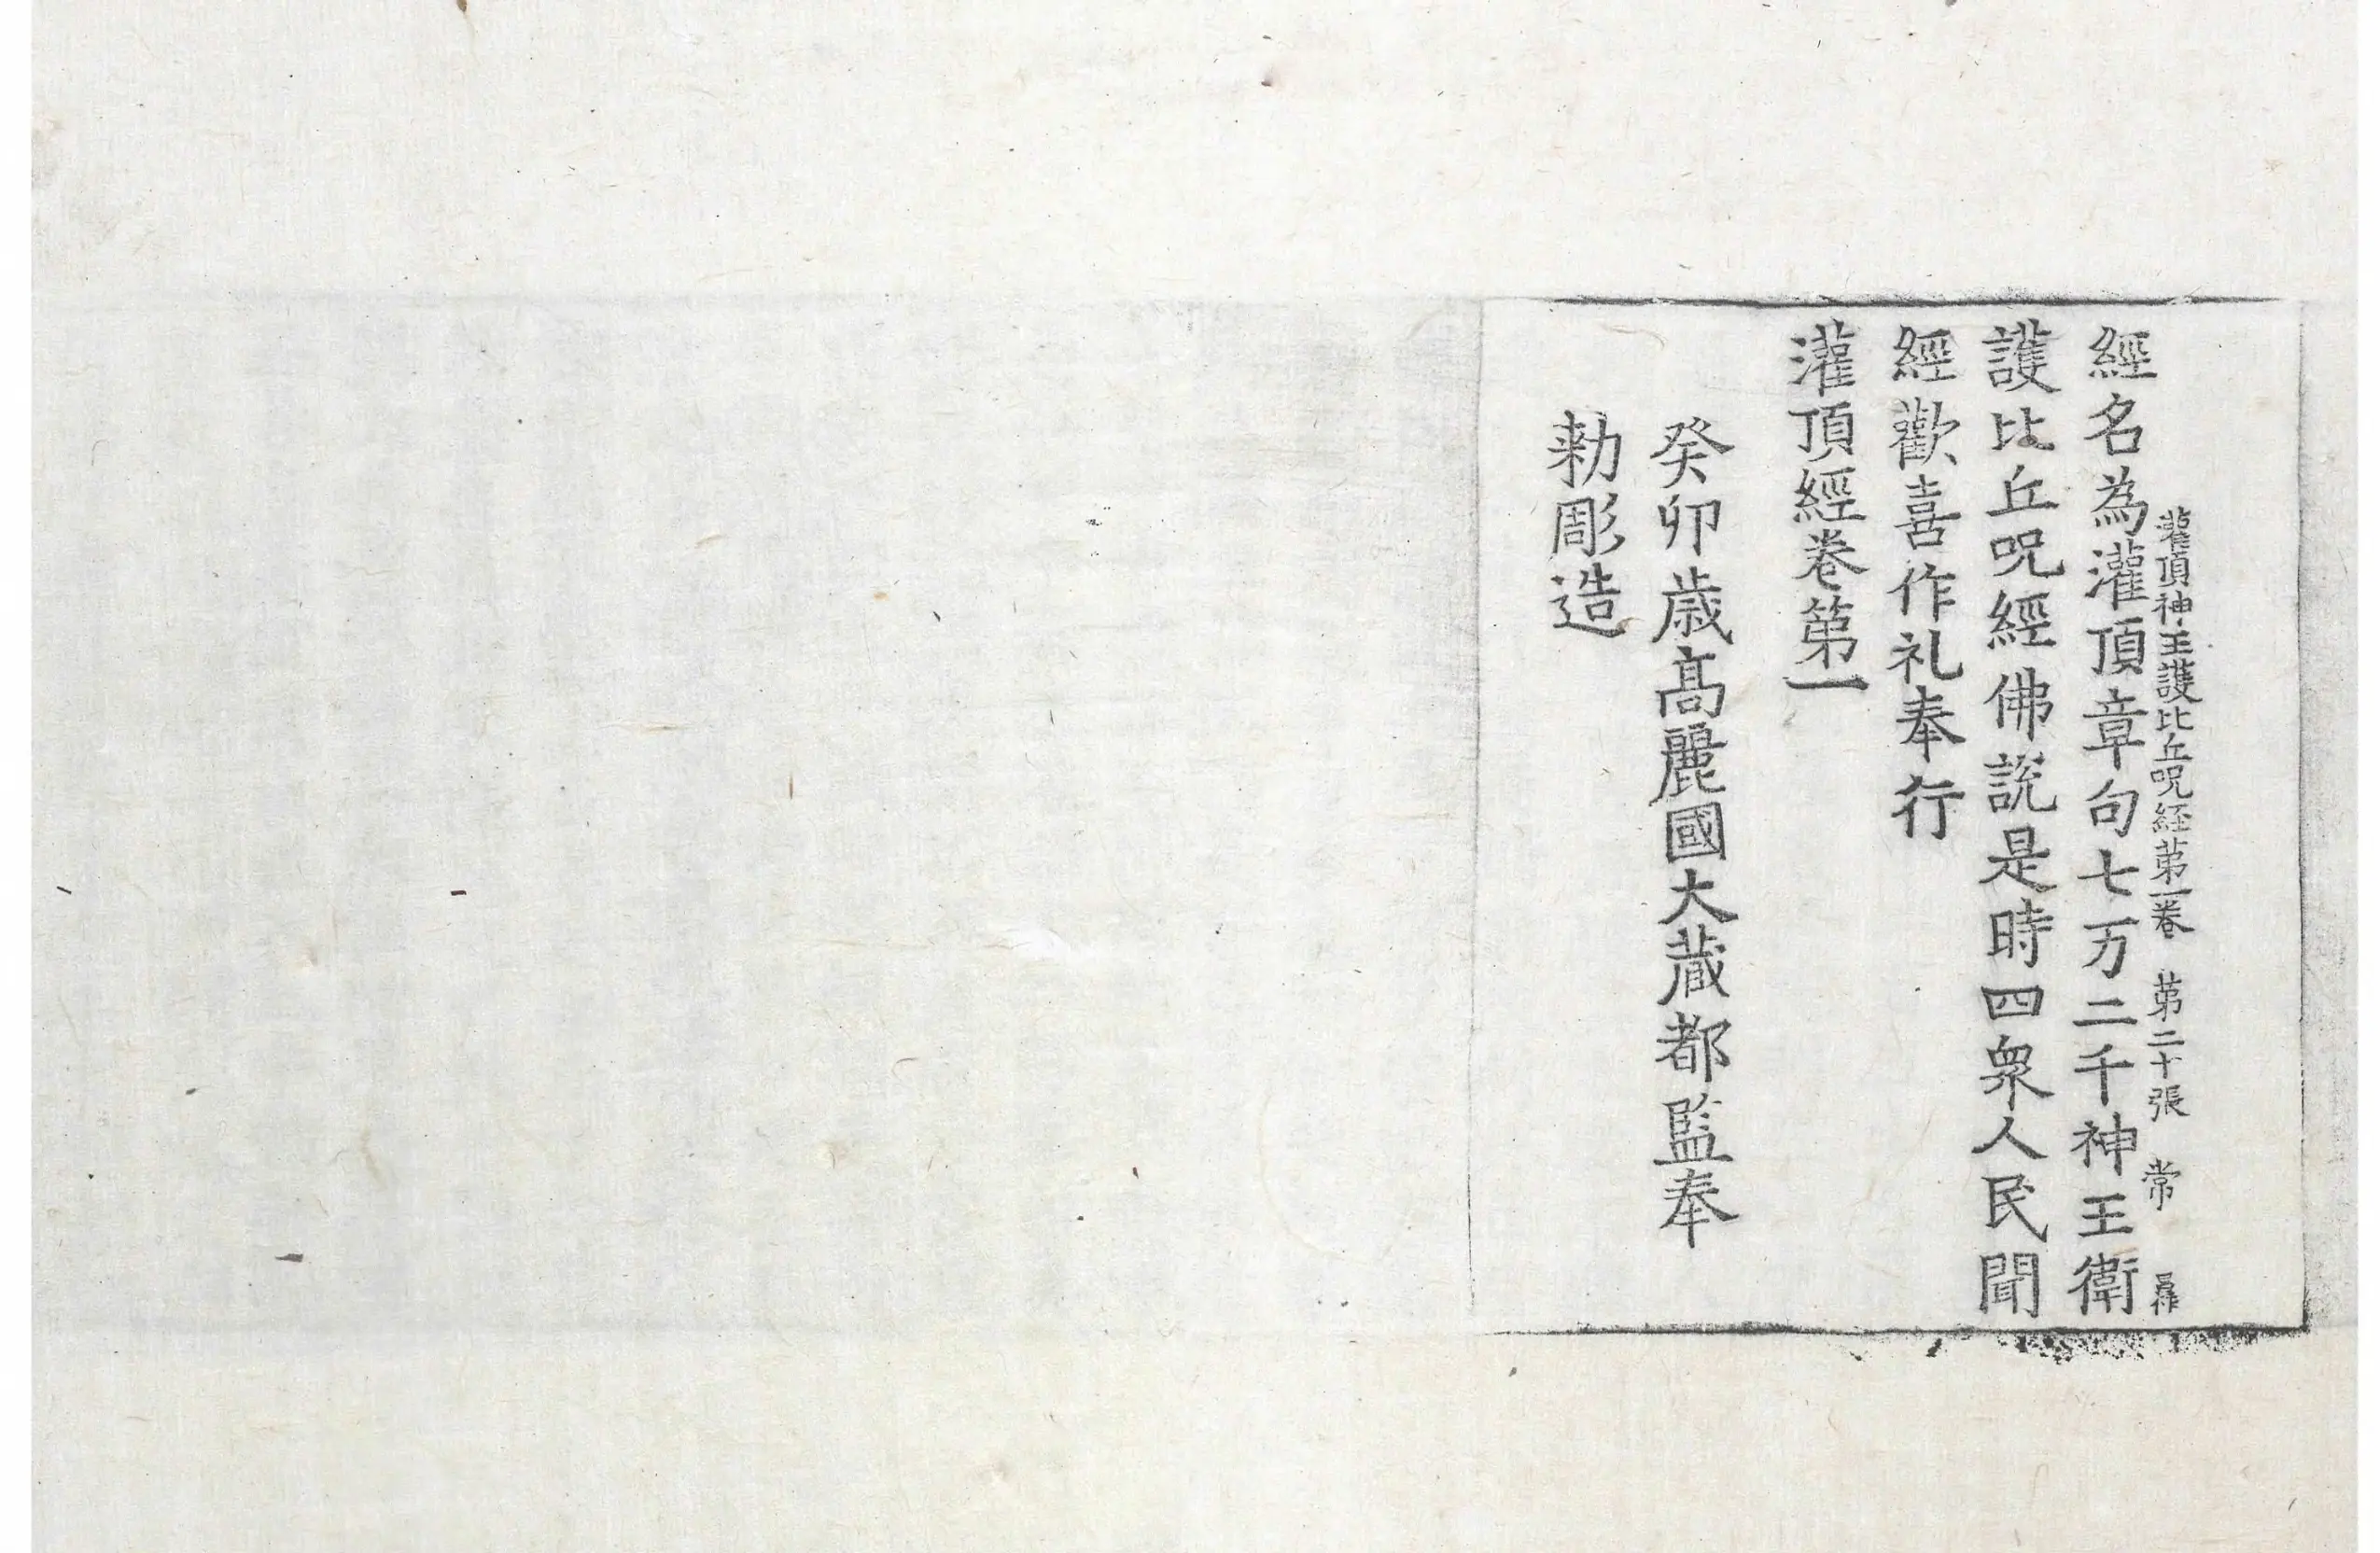 灌頂神王護比丘呪経苐一卷　苐二十張　常
經名為灌頂章句七万二千神王衛
護比丘呪經佛說是時四衆人民聞
經歡喜作礼奉行
灌頂經卷第一
癸卯歳髙麗國大藏都監奉
勑彫造